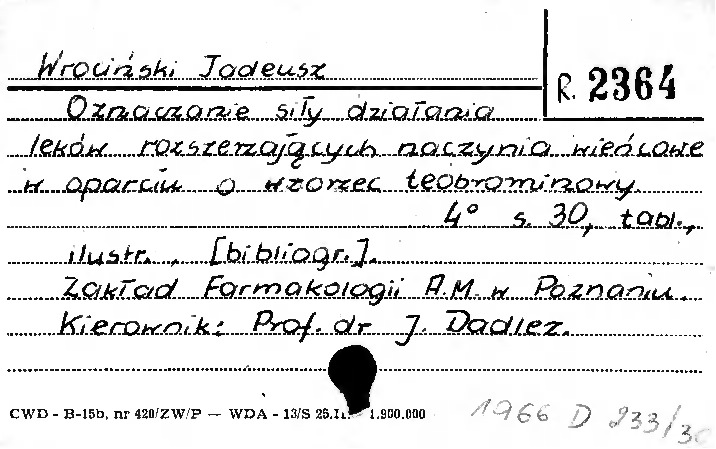 Wrociński Tadeusz
R. 2364
Oznaczanie siły działania
leków rozszerzających naczynia wieńcowe
w oparciu o wzorzec teobrominowy.
4° s. 30, tabl.,
ilustr., [bibliogr.].
Zakład Farmakologii A.M. w Poznaniu.
Kierownik: Prof. dr J. Dadlez.
CWD - B-15b, nr 420/ZW/P — WDA - 13/S 1.900.000
1966 D 233/30